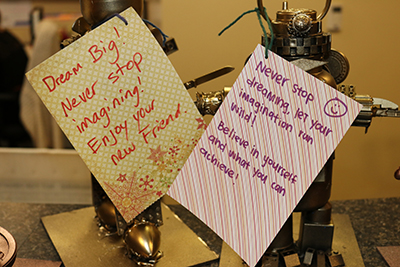 Dream Big!
Never stop
imagining!
Enjoy your
new Friend
Never stop
dreaming, let your
imagination run
wild!
Believe in yourself
and what you can
achieve!